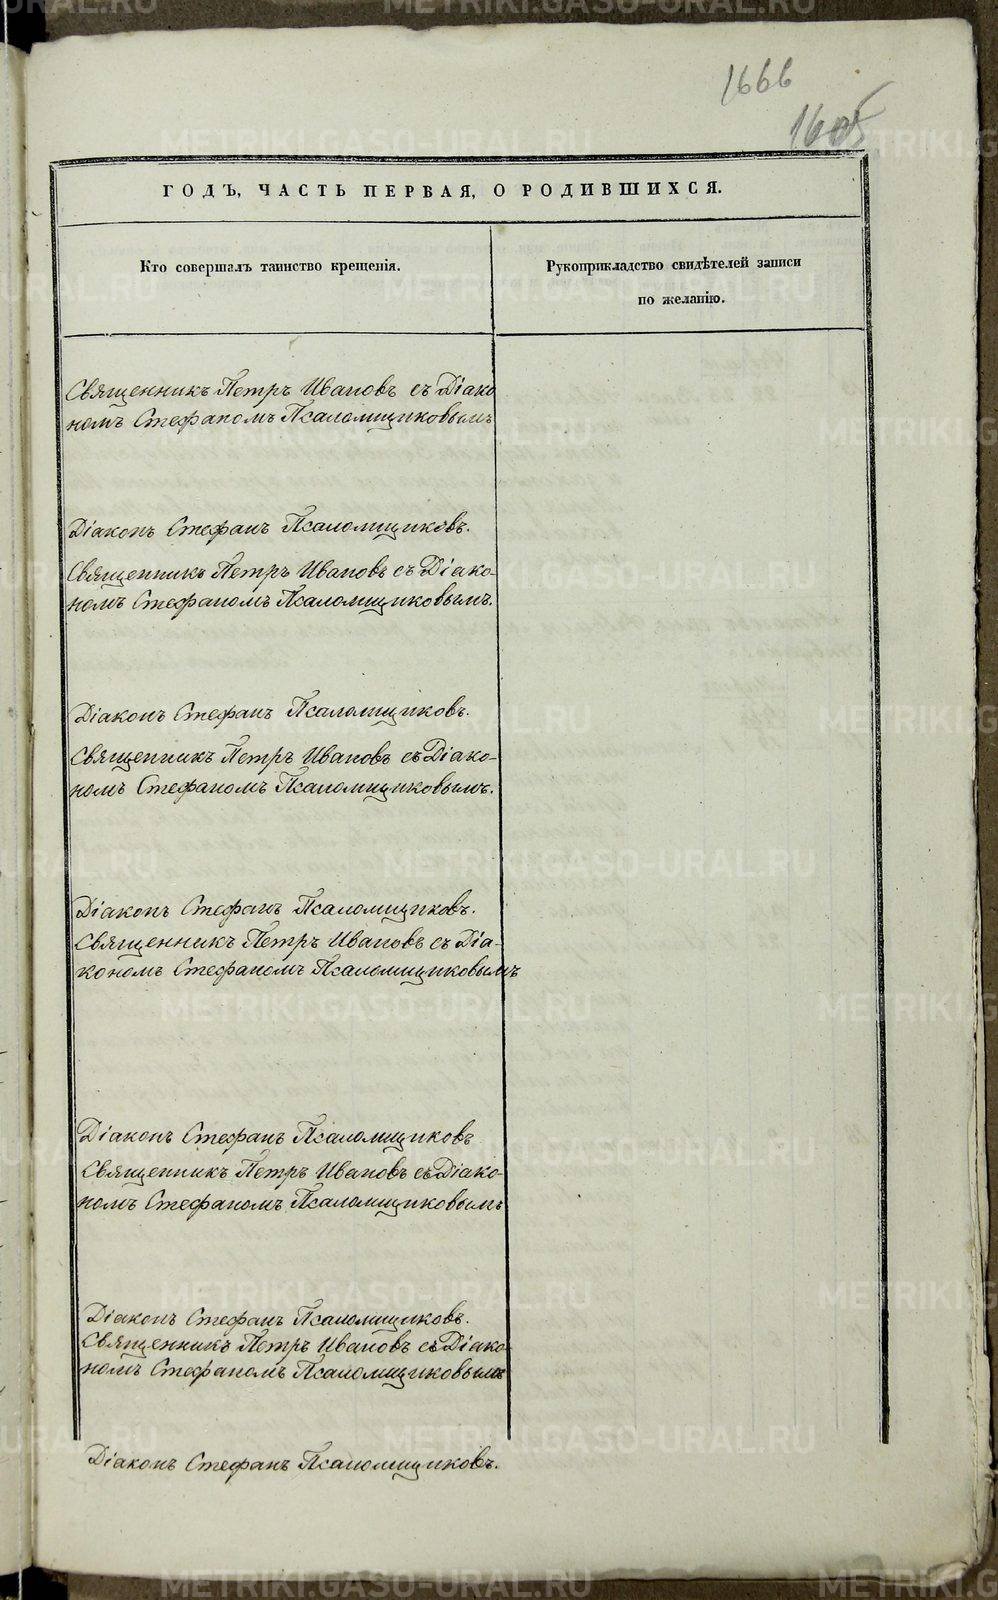 1666
1605
ГОДЪ, ЧАСТЬ ПЕРВАЯ, О РОДИВШИХСЯ.
Кто совершалъ таинство крещенія.
Рукоприкладство свидѣтелей записи
по желанію.
Священникъ Петръ Ивановъ съ Діако
номъ Стефаномъ Псаломщиковымъ
Діаконъ Стефанъ Псаломщиковъ.
Священникъ Петръ Ивановъ съ Діако-
номъ Стефаномъ Псаломщиковымъ.
Діаконъ Стефанъ Псаломщиковъ.
Священникъ Петръ Ивановъ съ Діако-
номъ Стефаномъ Псаломщиковымъ.
Діаконъ Стефанъ Псаломщиковъ.
Священникъ Петръ Ивановъ съ Діа-
кономъ Стефаномъ Псаломщиковымъ
Діаконъ Стефанъ Псаломщиковъ
Священникъ Петръ Ивановъ съ Діако-
номъ Стефаномъ Псаломщиковымъ
Діаконъ Стефанъ Псаломщиковъ.
Священникъ Петръ Ивановъ съ Діако-
номъ Стефаномъ Псаломщиковымъ
Діаконъ Стефанъ Псаломщиковъ.
METRIKI.GASO-URAL.RU